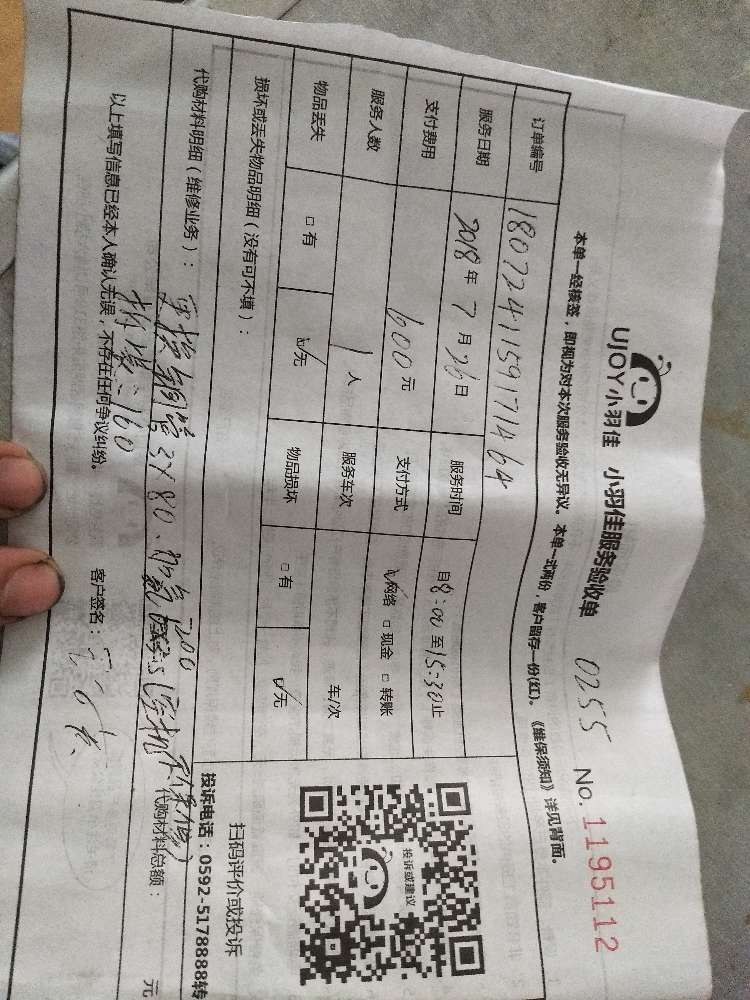 UJOY小羽佳 小羽佳服务验收单 0255 No.1195112
本单一经核签，即视为对本次服务验收无异议。本单一式两份，客户留存一份(红)。《维保须知》详见背面。
订单编号 1807241159171464
服务日期 2018年7月26日 服务时间 自8:00至15:30止
支付费用 600元 支付方式 ☑网络 □现金 □转账
服务人数 1人 服务车次 车/次
物品丢失 □有 ☑无 物品损坏 □有 ☑无
损坏或丢失物品明细（没有可不填）：
投诉或建议
扫码评价或投诉
投诉电话：0592-5178888转
代购材料明细（维修业务）： 更换铜管3×80、 200
拆装:160
代购材料总额： 元
以上填写信息已经本人确认无误，不存在任何争议纠纷。 客户签名：